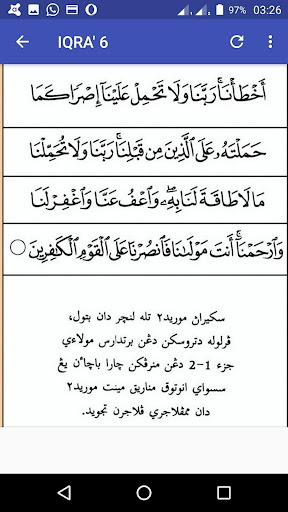 97% 03:26
IQRA' 6
أَخْطَأْنَا ۚ رَبَّنَا وَلَا تَحْمِلْ عَلَيْنَآ إِصْرًا كَمَا
حَمَلْتَهُۥ عَلَى ٱلَّذِينَ مِن قَبْلِنَا ۚ رَبَّنَا وَلَا تُحَمِّلْنَا
مَا لَا طَاقَةَ لَنَا بِهِۦ ۖ وَٱعْفُ عَنَّا وَٱغْفِرْ لَنَا
وَٱرْحَمْنَآ ۚ أَنتَ مَوْلَىٰنَا فَٱنصُرْنَا عَلَى ٱلْقَوْمِ ٱلْكَٰفِرِينَ
سكيراڽ موريد٢ تله لنچر دان بتول،
ڤرلوله دتروسكن دڠن برتدارس مولاءي
جزء 1-2 دڠن منرڤكن چارا باچاءن يڠ
سسواي انتوق مناريق مينت موريد٢
دان ممڤلاجري ڤلاجرن تجويد.